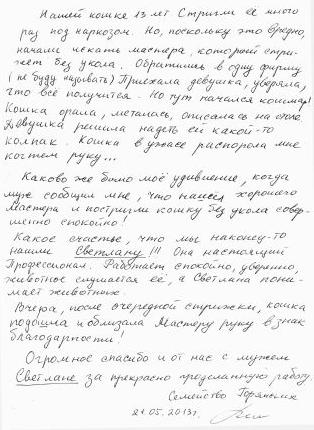 Нашей кошке 13 лет Стригли её много
раз под наркозом. Но, поскольку это вредно,
начали искать мастера, который стри-
жет без укола. Обратились в одну фирму
(не буду называть) Приехала девушка, уверяла,
что всё получится. Но тут начался кошмар!
Кошка орала, металась, описалась на
Девушка решила надеть ей какой-то
колпак. Кошка в ужасе распорола мне
когтем руку...
Каково же было моё удивление, когда
муж сообщил мне, что нашел хорошего
Мастера и постригли кошку без укола совер-
шенно спокойно!
Какое счастье, что мы наконец-то
нашли Светлану!!! Она настоящий
Профессионал. Работает спокойно, уверенно,
животное слушается её, а Светлана пони-
мает животных
Вчера, после очередной стрижки, кошка
подошла и облизала Мастеру руку в знак
благодарности!
Огромное спасибо и от нас с мужем
Светлане за прекрасно проделанную работу.
Семейство
21.05.2013г.